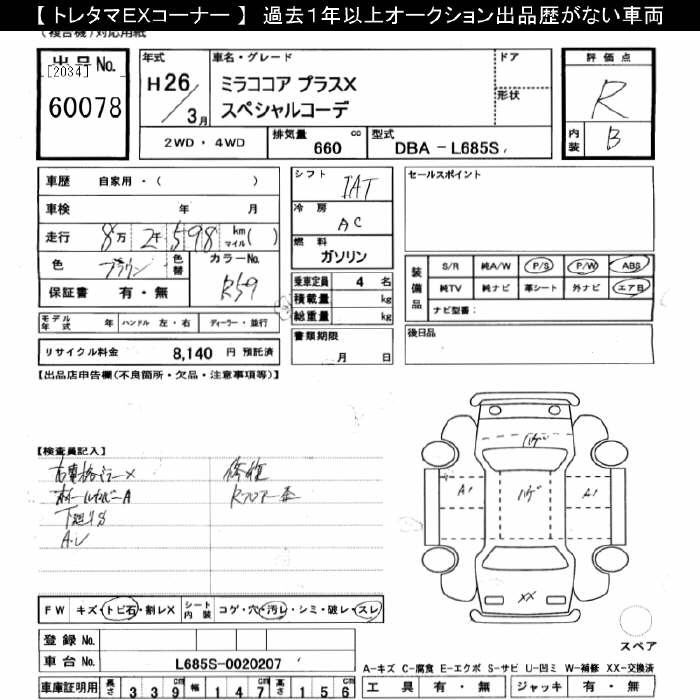 【 トレタマEXコーナー 】 過去1年以上オークション出品歴がない車両
出品No.
[2034]
60078
年式
H26/3月
車名・グレード
ミラココア プラスX
スペシャルコーデ
ドア
形状
評価点
R
内装
B
2WD・4WD
排気量
660
cc
型式
DBA－L685S
車歴
自家用・( )
車検
年 月
走行
8万2千598
km
マイル( )
色
ブラウン
色替
カラーNo.
R59
保証書
有・無
シフト
IAT
冷房
AC
燃料
ガソリン
乗車定員
4 名
積載量
kg
総重量
kg
書類期限
月 日
セールスポイント
装備品
S/R 純A/W P/S P/W ABS
純TV 純ナビ 革シート 外ナビ エア日
ナビ型番：
後日品
モデル年式
年
ハンドル 左・右
ディーラー・並行
リサイクル料金
8,140 円 預託済
【出品店申告欄(不良箇所・欠品・注意事項等)】
【検査員記入】
修復
ホイールカバーA
下廻りS
F W
キズ・トビ石・割レX
シート内装
コゲ・穴・汚レ・シミ・破レ・スレ
登録 No.
車台 No.
L685S-0020207
車庫証明用
長さ
339
幅
147
高さ
156
A1
ハゲ
A1
XX
スペア
A-キズ C-腐食 E-エクボ S-サビ U-凹ミ W-補修 XX-交換済
工具
有・無
ジャッキ
有・無